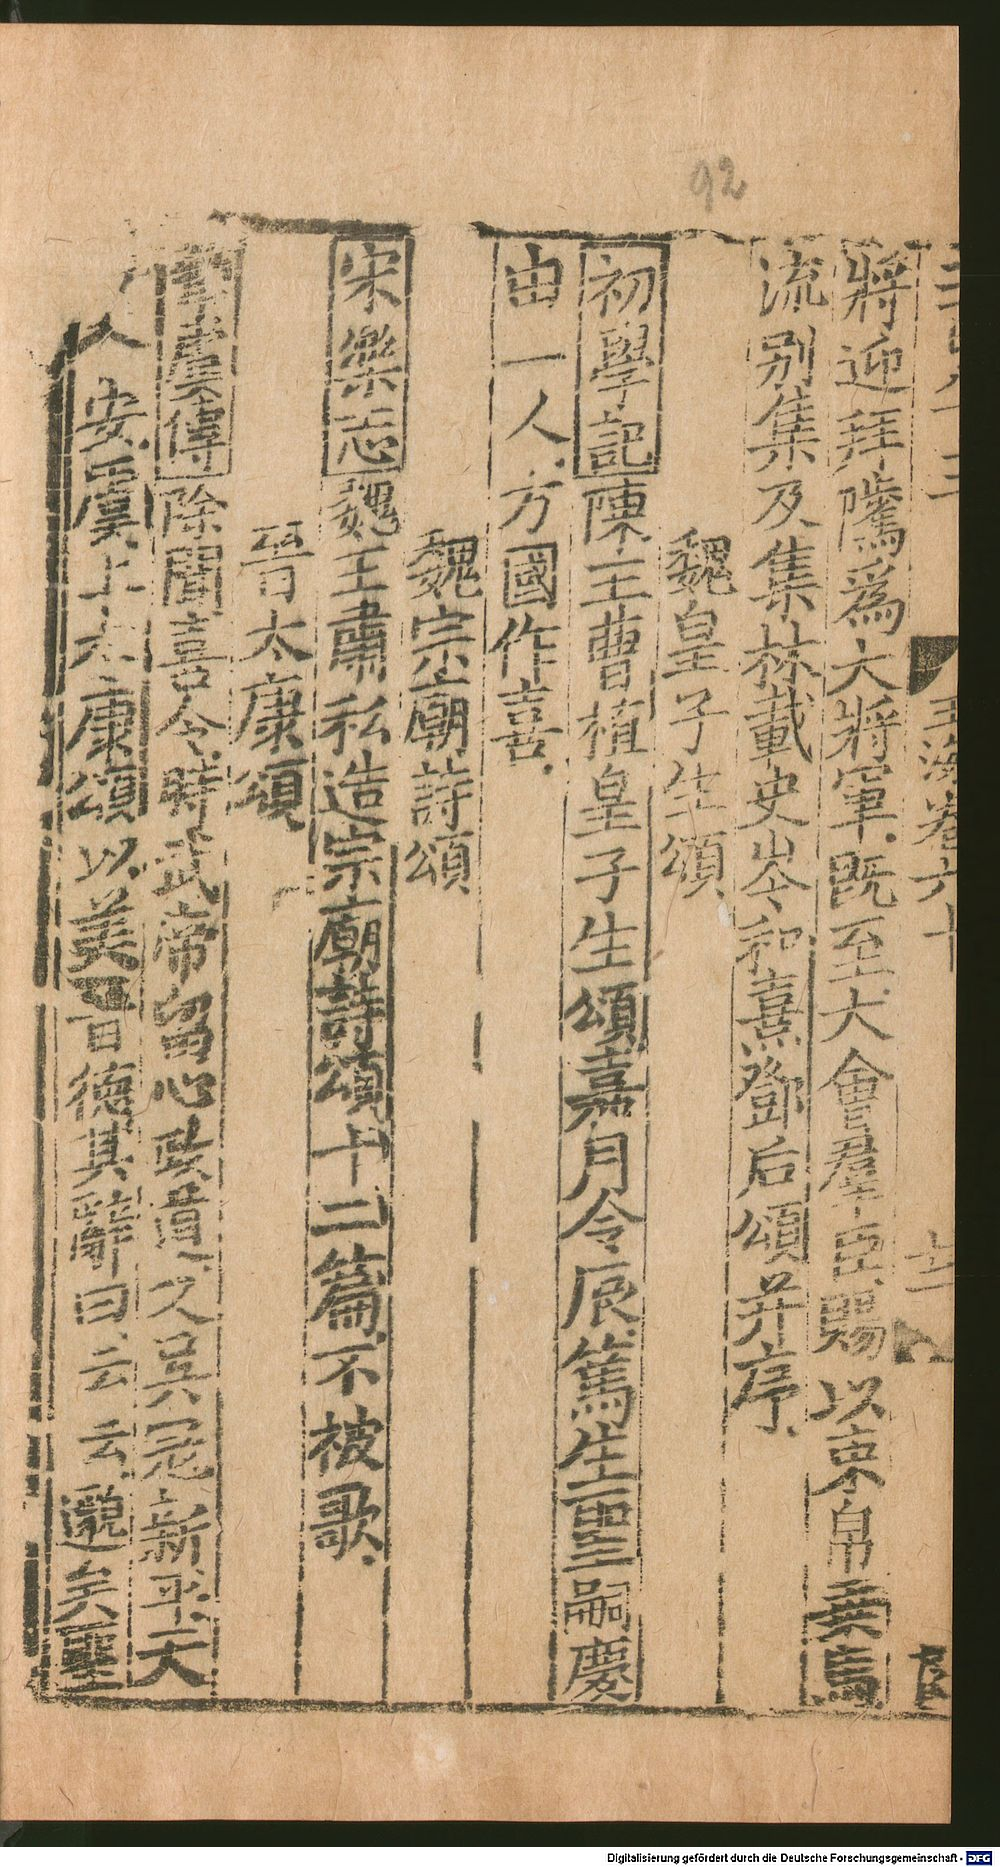 92
玉海卷六十
將迎拜隲爲大將軍既至大會羣臣賜以束帛乗馬
流别集及集林載史岑和熹鄧后頌并序
魏皇子生頌
初學記陳王曹植皇子生頌嘉月令辰篤生聖嗣慶
由一人方國作喜
魏宗廟詩頌
宋樂志魏王肅私造宗廟詩頌十二篇不被歌
晉太康頌
虞傳除聞喜令時武帝留心政道又吳冦新平天
人安虞上太康頌以美晉德其辭曰云云邈矣聖
Digitalisierung gefördert durch die Deutsche Forschungsgemeinschaft - DFG